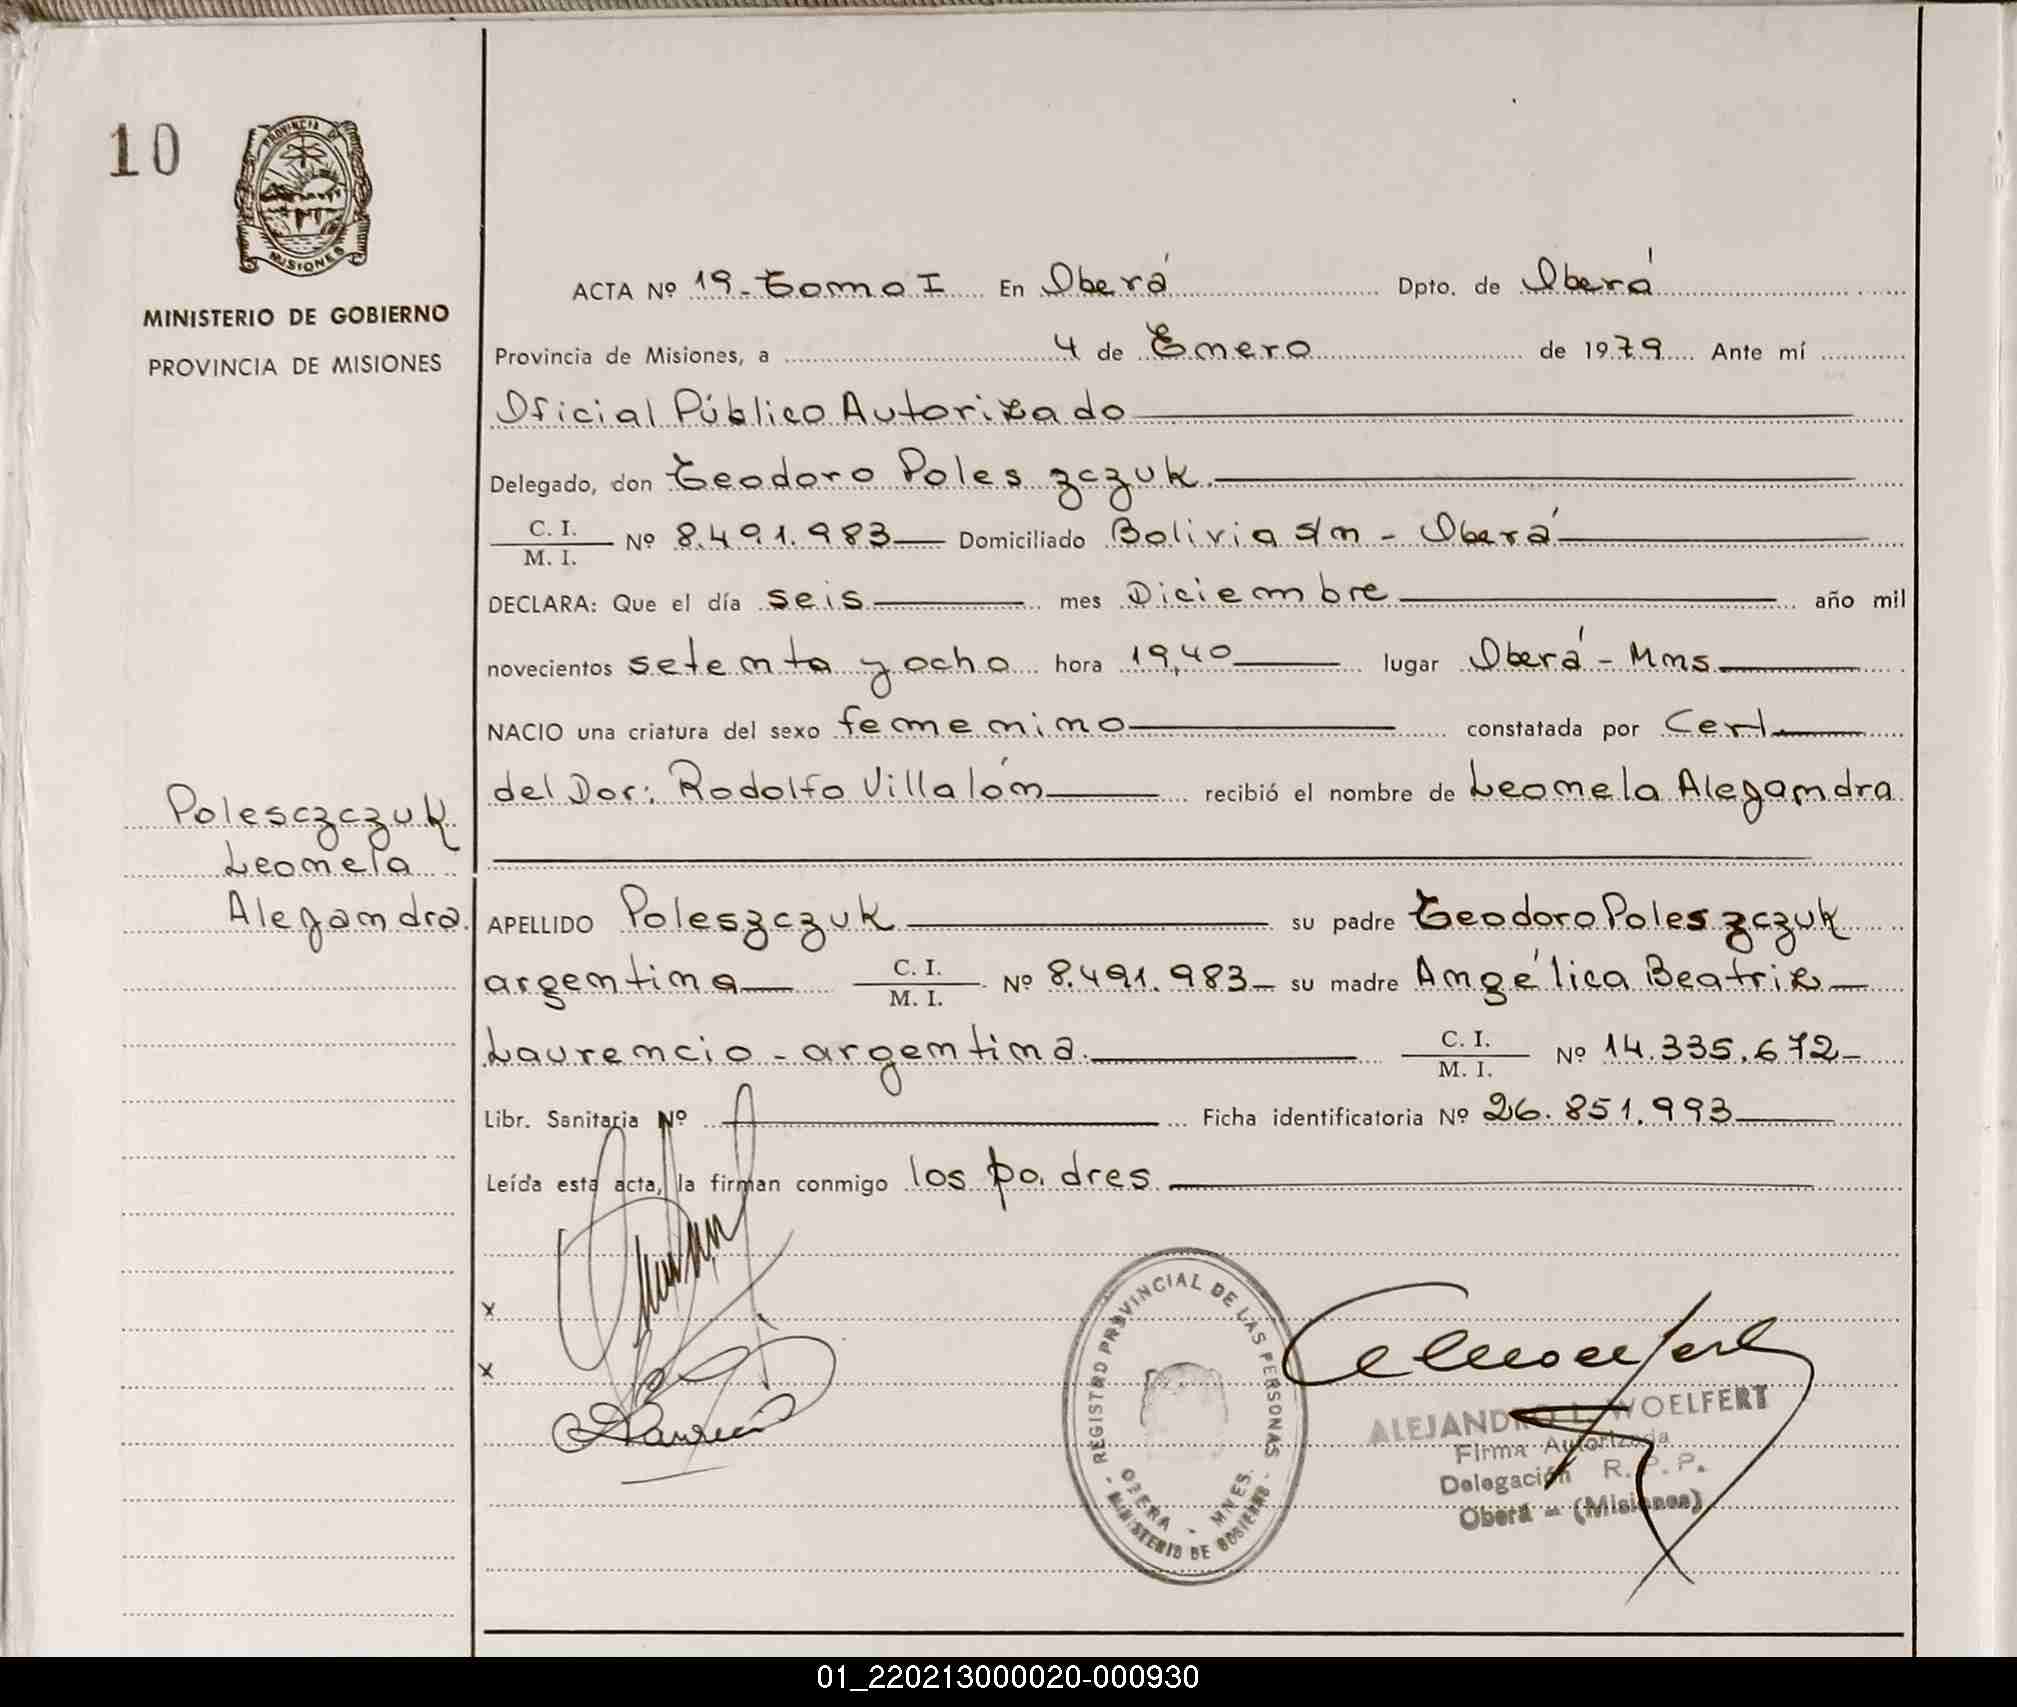 10
PROVINCIA DE
MISIONES
MINISTERIO DE GOBIERNO
PROVINCIA DE MISIONES
ACTA Nº 19-Tomo I En Oberá Dpto. de Oberá
Provincia de Misiones, a 4 de Enero de 1979 Ante mí
Oficial Público Autorizado
Delegado, don Teodoro Poleszczuk
C. I.
M. I. Nº 8.491.983 Domiciliado Bolivia s/n - Oberá
DECLARA: Que el día seis mes Diciembre año mil
novecientos setenta y ocho hora 19,40 lugar Oberá - Mns
NACIO una criatura del sexo femenino constatada por Cert.
del Dor: Rodolfo Villalón recibió el nombre de Leonela Alejandra
Polesczczuk
Leonela
Alejandra
APELLIDO Poleszczuk su padre Teodoro Poleszczuk
argentina C. I.
M. I. Nº 8.491.983 su madre Angélica Beatriz
Laurencio - argentina. C. I.
M. I. Nº 14.335.672
Libr. Sanitaria Nº Ficha identificatoria Nº 26.851.993
Leída esta acta, la firman conmigo los padres
x
x
REGISTRO PROVINCIAL DE LAS PERSONAS
OBERA - MNES.
MINISTERIO DE GOBIERNO
ALEJANDRO L. WOELFERT
Firma Autorizada
Delegación R. P. P.
Oberá - (Misiones)
01_220213000020-000930